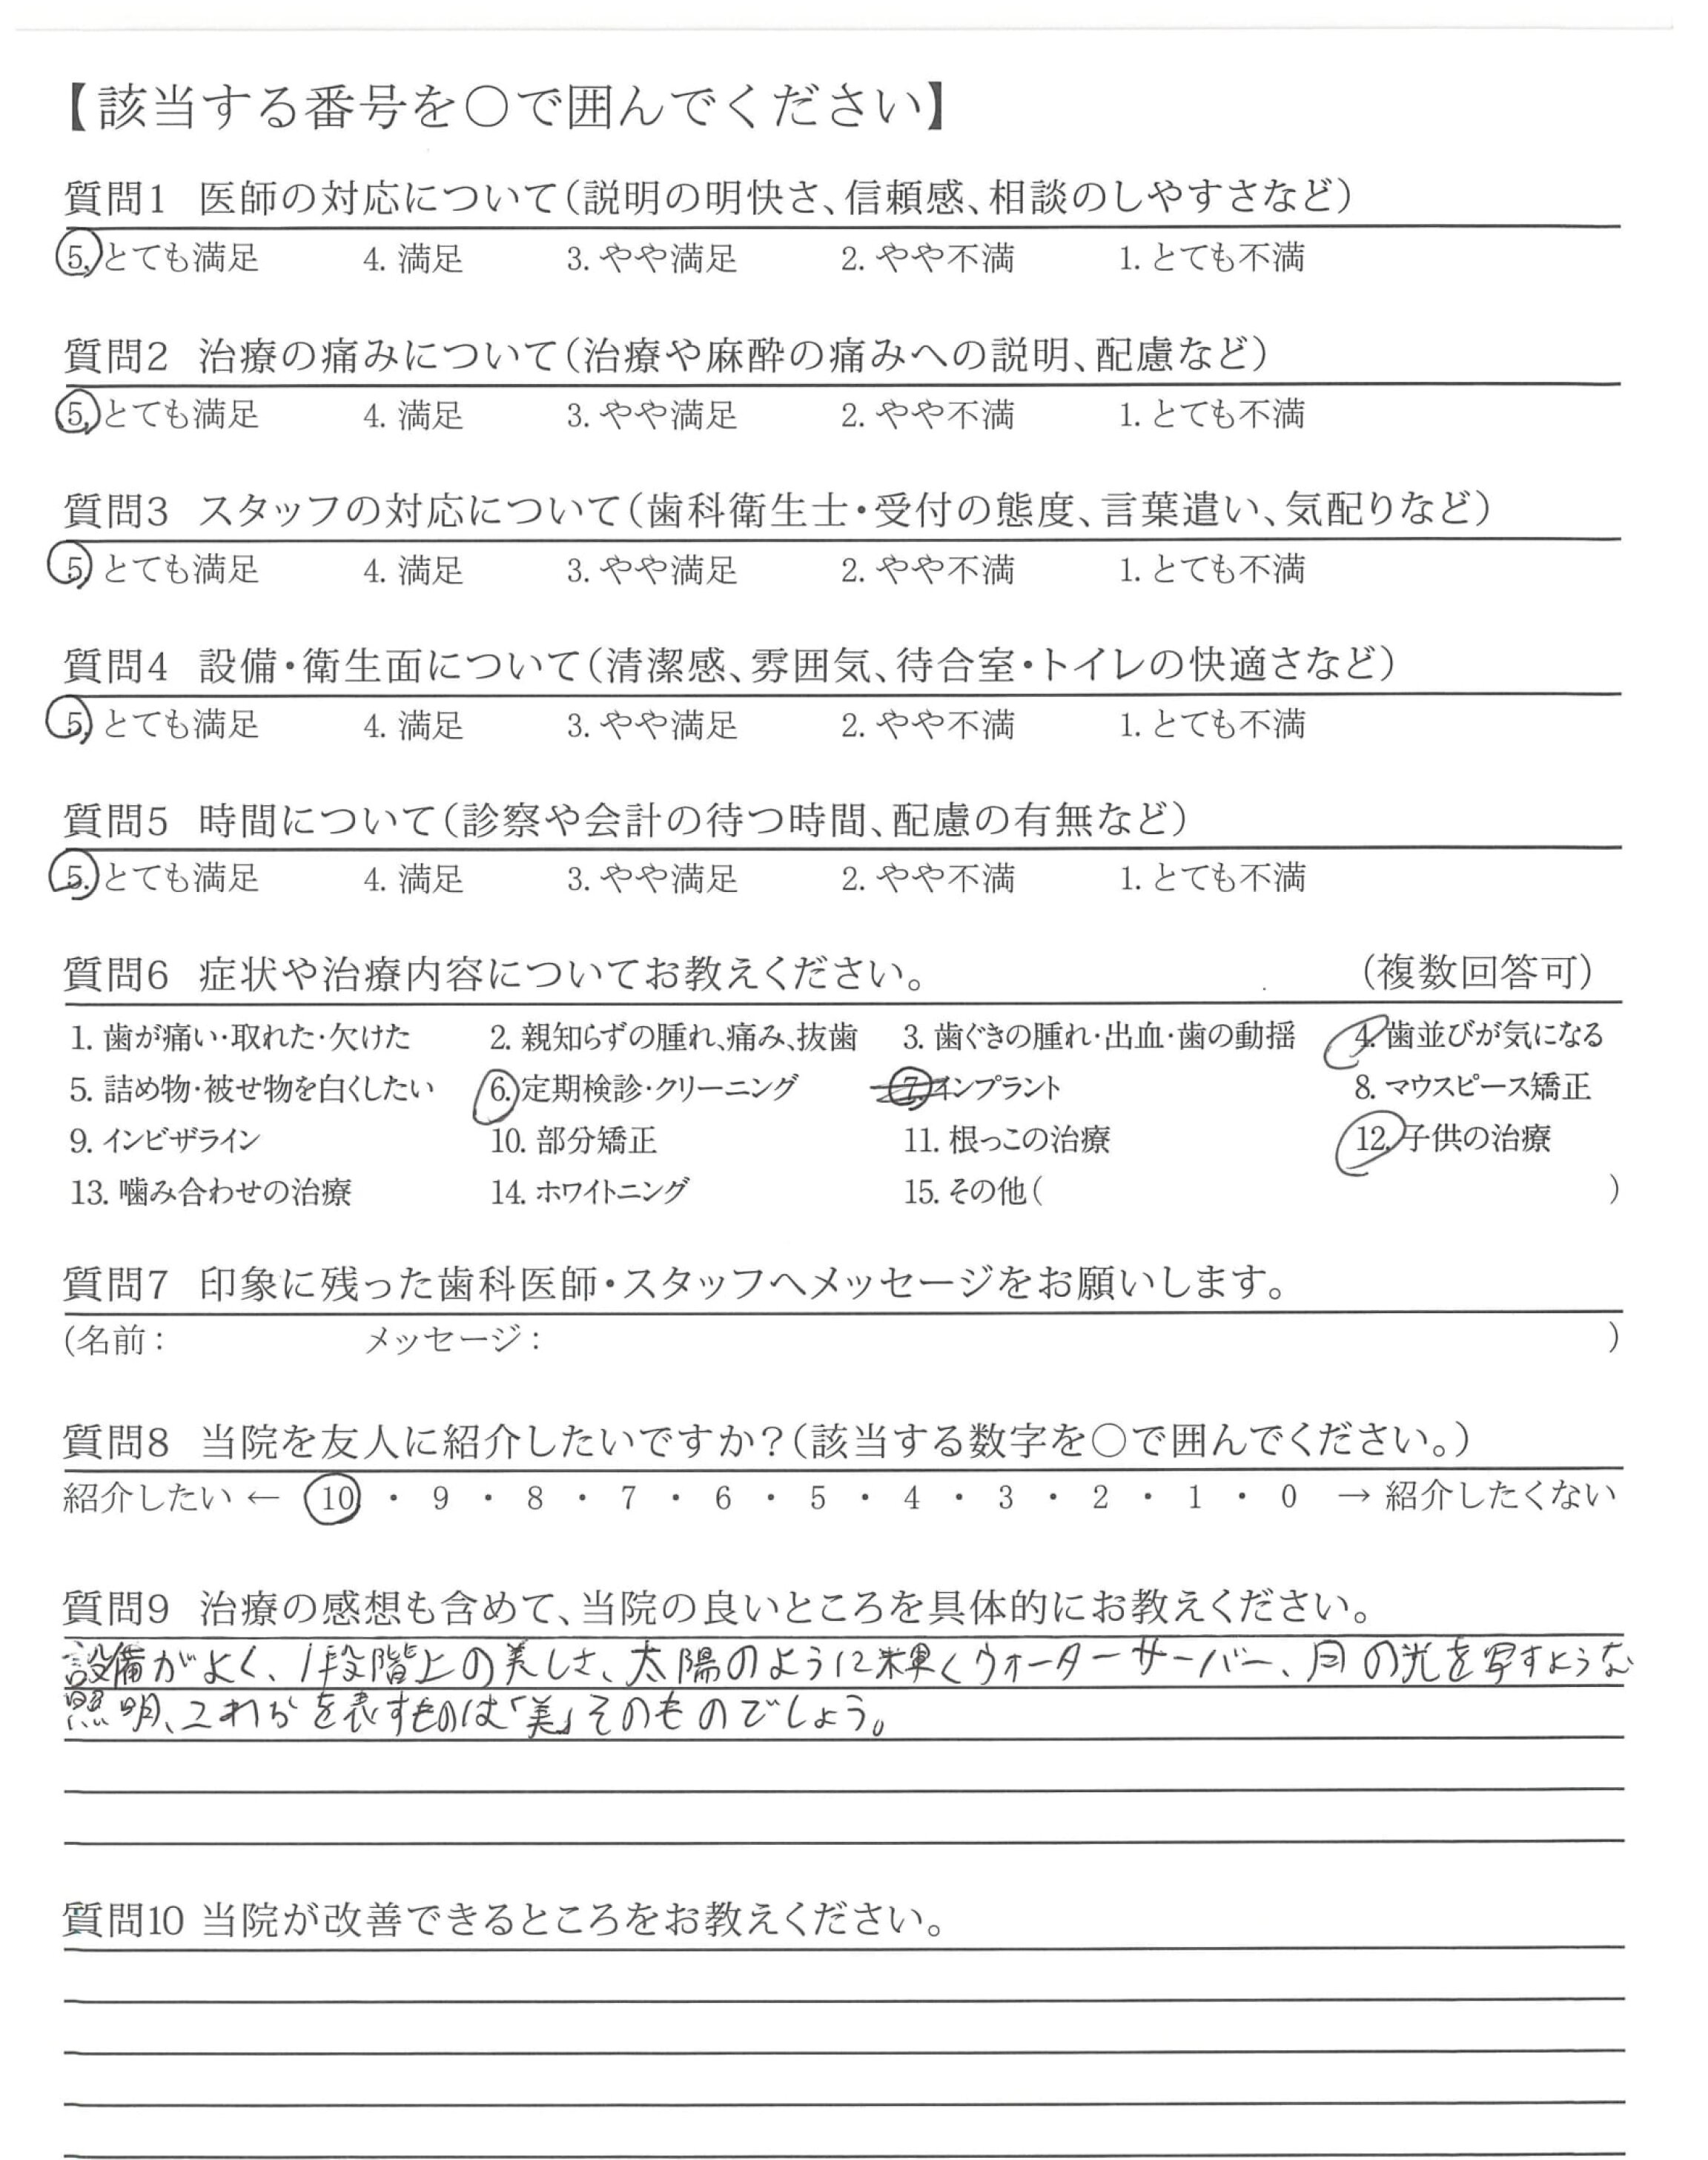 【該当する番号を○で囲んでください】
質問1 医師の対応について(説明の明快さ、信頼感、相談のしやすさなど)
5. とても満足 4. 満足 3. やや満足 2. やや不満 1. とても不満
質問2 治療の痛みについて(治療や麻酔の痛みへの説明、配慮など)
5. とても満足 4. 満足 3. やや満足 2. やや不満 1. とても不満
質問3 スタッフの対応について(歯科衛生士・受付の態度、言葉遣い、気配りなど)
5. とても満足 4. 満足 3. やや満足 2. やや不満 1. とても不満
質問4 設備・衛生面について(清潔感、雰囲気、待合室・トイレの快適さなど)
5. とても満足 4. 満足 3. やや満足 2. やや不満 1. とても不満
質問5 時間について(診察や会計の待つ時間、配慮の有無など)
5. とても満足 4. 満足 3. やや満足 2. やや不満 1. とても不満
質問6 症状や治療内容についてお教えください。 (複数回答可)
1. 歯が痛い・取れた・欠けた 2. 親知らずの腫れ、痛み、抜歯 3. 歯ぐきの腫れ・出血・歯の動揺 4. 歯並びが気になる
5. 詰め物・被せ物を白くしたい 6. 定期検診・クリーニング 7. インプラント 8. マウスピース矯正
9. インビザライン 10. 部分矯正 11. 根っこの治療 12. 子供の治療
13. 噛み合わせの治療 14. ホワイトニング 15. その他( )
質問7 印象に残った歯科医師・スタッフへメッセージをお願いします。
(名前: メッセージ: )
質問8 当院を友人に紹介したいですか?(該当する数字を○で囲んでください。)
紹介したい ← 10 ・ 9 ・ 8 ・ 7 ・ 6 ・ 5 ・ 4 ・ 3 ・ 2 ・ 1 ・ 0 → 紹介したくない
質問9 治療の感想も含めて、当院の良いところを具体的にお教えください。
設備がよく、1段階上の美しさ、太陽のように輝くウォーターサーバー、月の光を写すような
照明、これらを表すものは「美」そのものでしょう。
質問10 当院が改善できるところをお教えください。